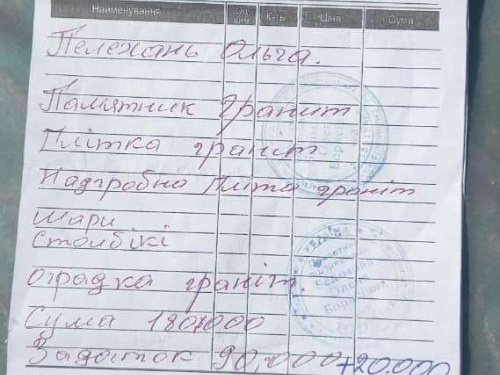 Найменування Од. вим. К-ть Ціна Сума
Пелехань Ольга.
Памятник граніт
Плітка граніт
Надгробна плита граніт
Шари
Столбікі
оградка граніт.
Сума 180000
Задаток 90,000 +20.000